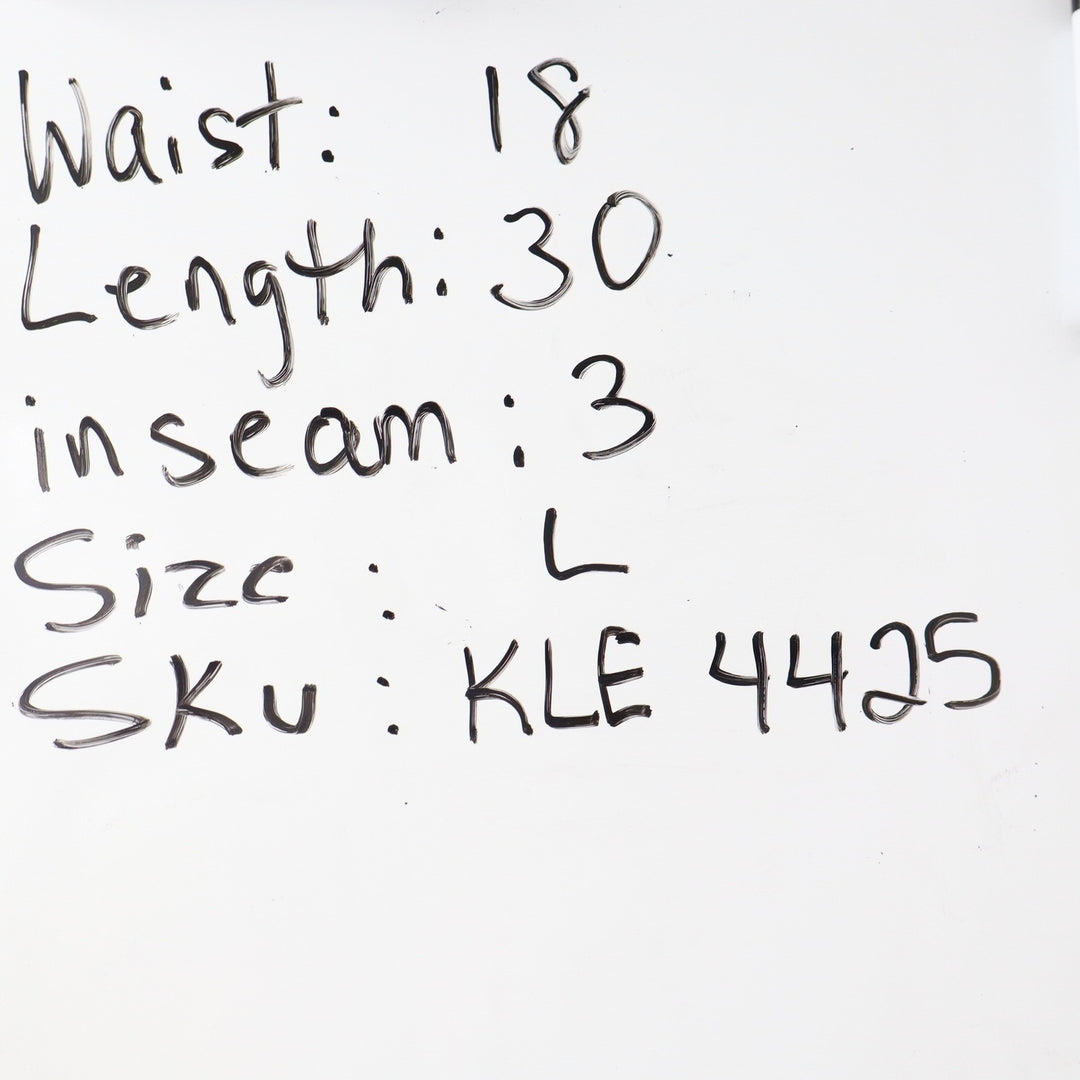 Waist: 18
Length: 30
inseam: 3
Size: L
SKU: KLE 4425